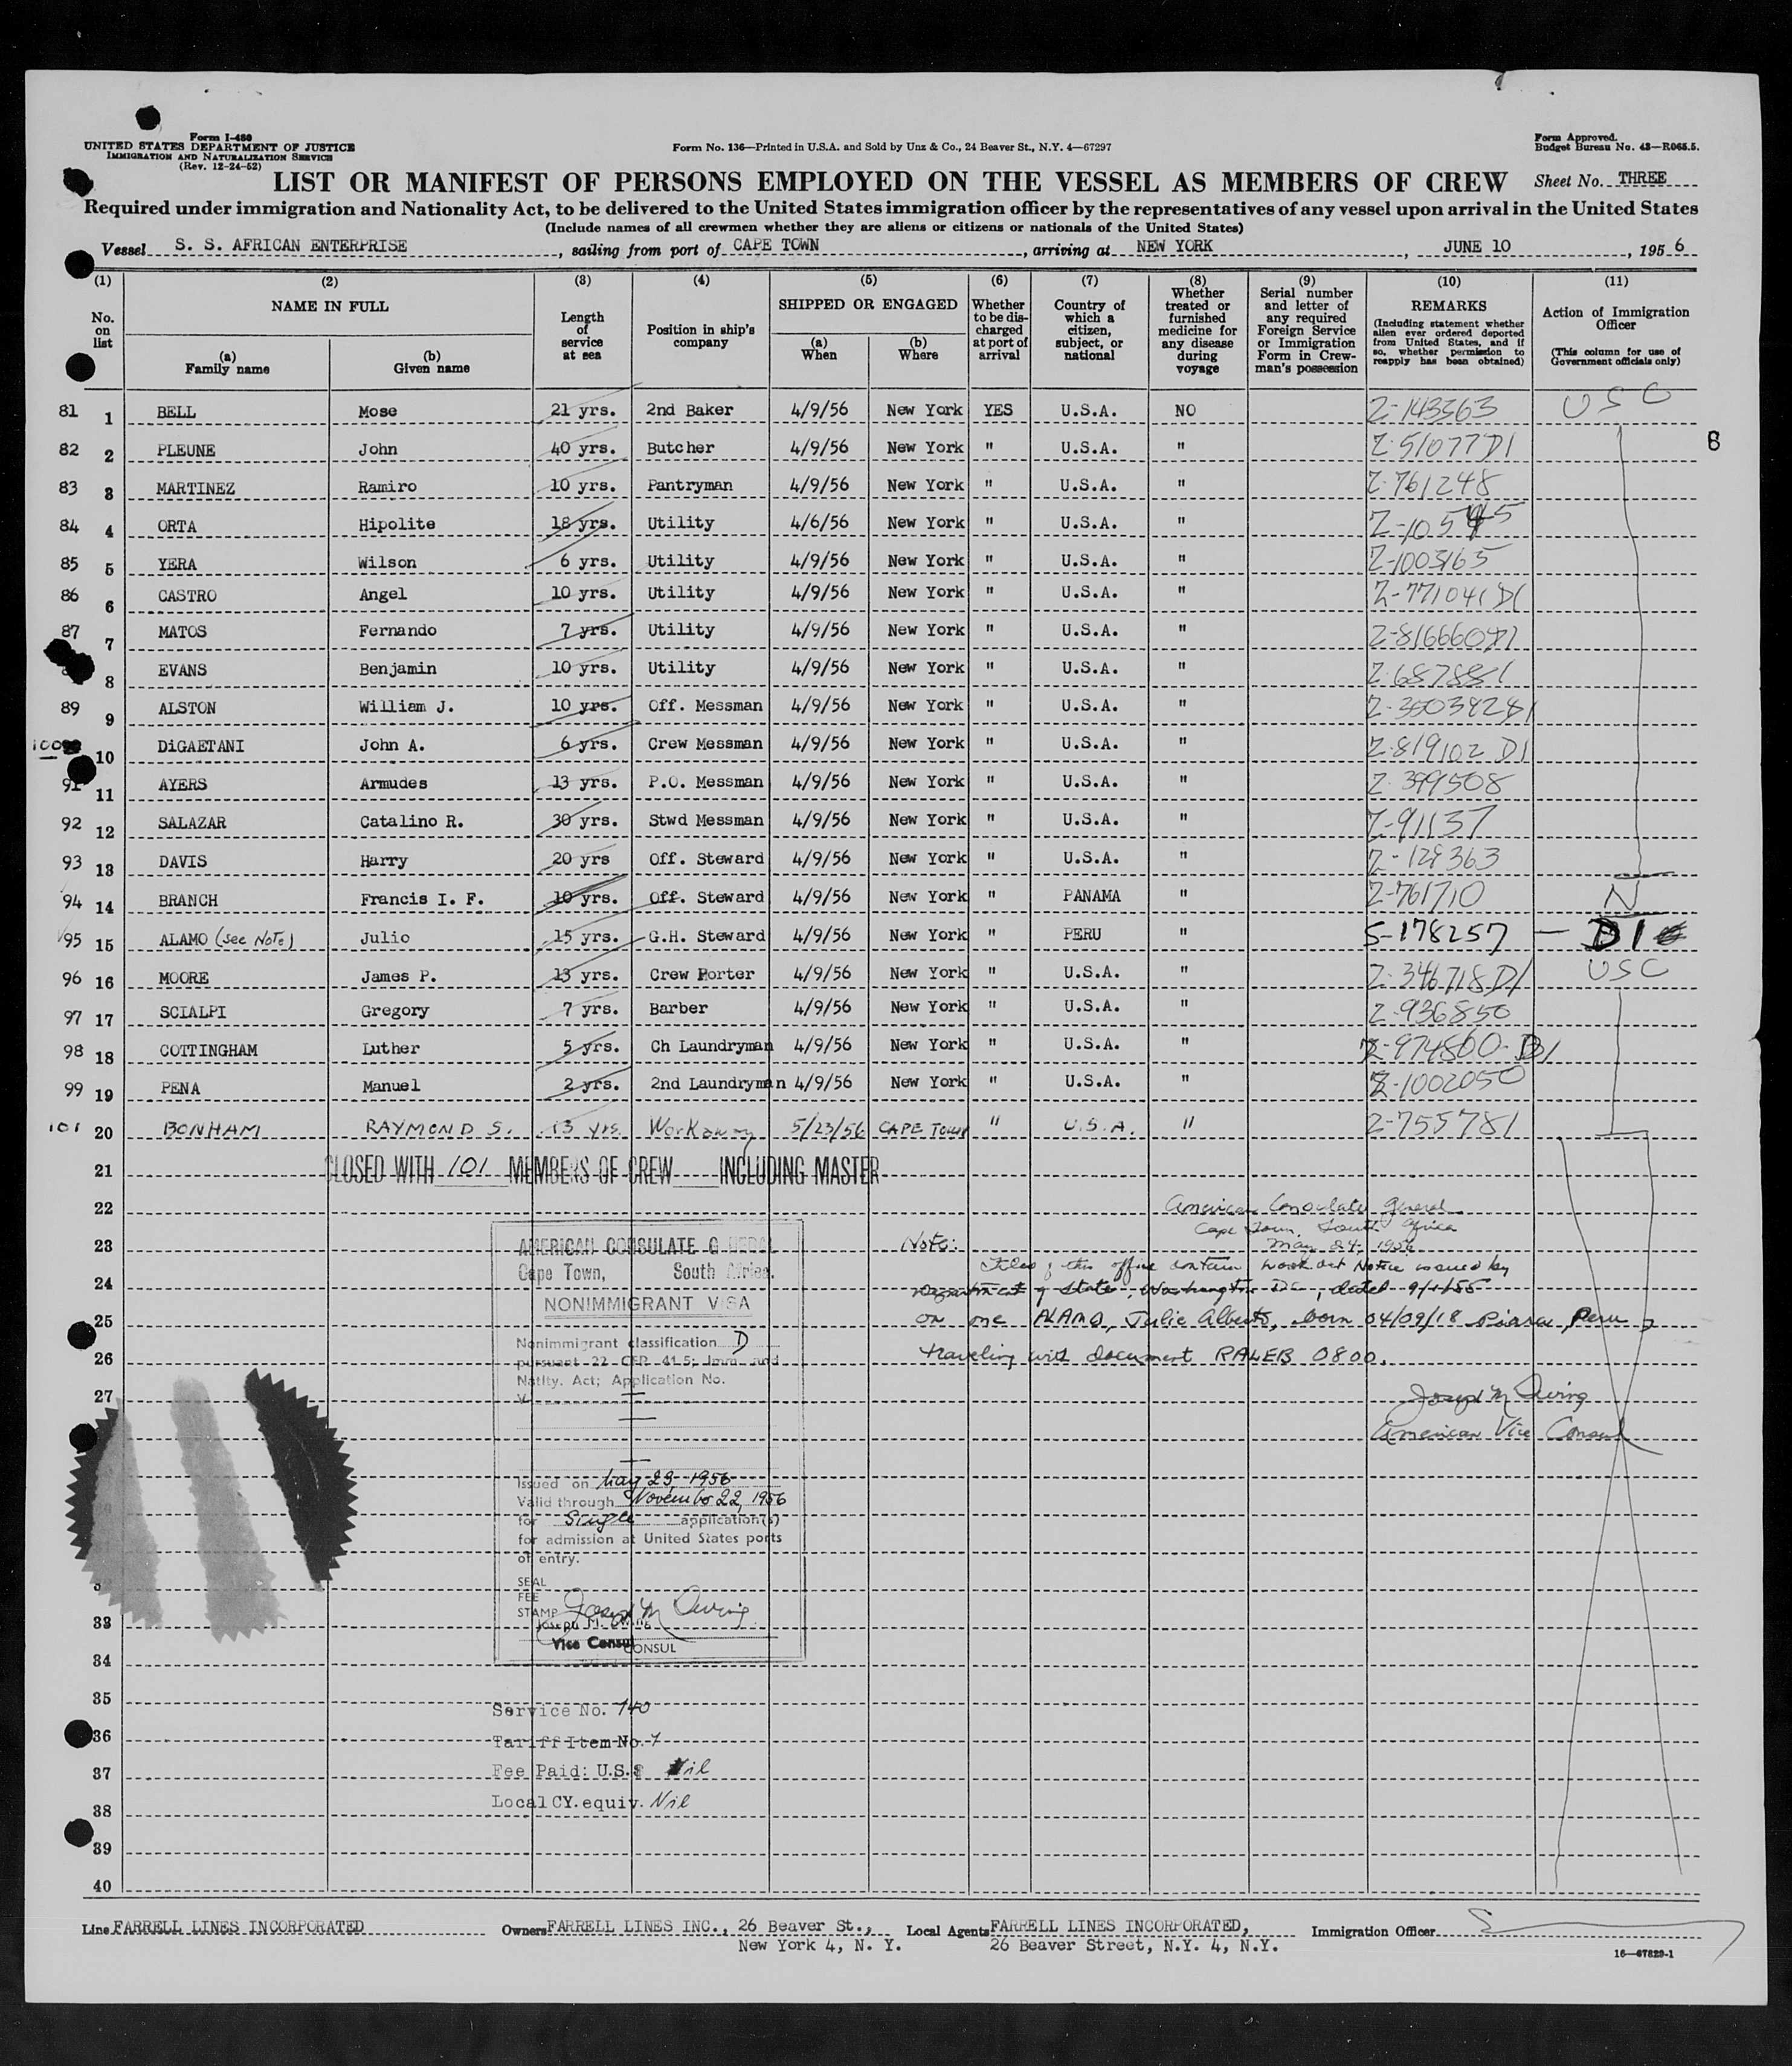 Form I-480
UNITED STATES DEPARTMENT OF JUSTICE
IMMIGRATION AND NATURALIZATION SERVICE
(Rev. 12-24-52)
Form No. 136—Printed in U.S.A. and Sold by Unz & Co., 24 Beaver St., N.Y. 4—67297
Form Approved.
Budget Bureau No. 43—R065.5.
LIST OR MANIFEST OF PERSONS EMPLOYED ON THE VESSEL AS MEMBERS OF CREW Sheet No. THREE
Required under immigration and Nationality Act, to be delivered to the United States immigration officer by the representatives of any vessel upon arrival in the United States
(Include names of all crewmen whether they are aliens or citizens or nationals of the United States)
Vessel S. S. AFRICAN ENTERPRISE, sailing from port of CAPE TOWN, arriving at NEW YORK, JUNE 10, 1956
(1) No. on list
(2) NAME IN FULL
(a) Family name
(b) Given name
(3) Length of service at sea
(4) Position in ship's company
(5) SHIPPED OR ENGAGED
(a) When
(b) Where
(6) Whether to be discharged at port of arrival
(7) Country of which a citizen, subject, or national
(8) Whether treated or furnished medicine for any disease during voyage
(9) Serial number and letter of any required Foreign Service or Immigration Form in Crewman's possession
(10) REMARKS (Including statement whether alien ever ordered deported from United States, and if so, whether permission to reapply has been obtained)
(11) Action of Immigration Officer (This column for use of Government officials only)
81 1 BELL Mose 21 yrs. 2nd Baker 4/9/56 New York YES U.S.A. NO Z-143363 USC
82 2 PLEUNE John 40 yrs. Butcher 4/9/56 New York " U.S.A. " Z-51077D1
83 3 MARTINEZ Ramiro 10 yrs. Pantryman 4/9/56 New York " U.S.A. " Z-761248
84 4 ORTA Hipolite 18 yrs. Utility 4/6/56 New York " U.S.A. "
85 5 YERA Wilson 6 yrs. Utility 4/9/56 New York " U.S.A. " Z-1003165
86 6 CASTRO Angel 10 yrs. Utility 4/9/56 New York " U.S.A. " Z-771041 D1
87 7 MATOS Fernando 7 yrs. Utility 4/9/56 New York " U.S.A. "
8 EVANS Benjamin 10 yrs. Utility 4/9/56 New York " U.S.A. "
89 9 ALSTON William J. 10 yrs. Off. Messman 4/9/56 New York " U.S.A. "
100 10 DiGAETANI John A. 6 yrs. Crew Messman 4/9/56 New York " U.S.A. " Z-819102 D1
91 11 AYERS Armudes 13 yrs. P.O. Messman 4/9/56 New York " U.S.A. " Z-399508
92 12 SALAZAR Catalino R. 30 yrs. Stwd Messman 4/9/56 New York " U.S.A. " Z-91137
93 13 DAVIS Harry 20 yrs Off. Steward 4/9/56 New York " U.S.A. " Z-129363
94 14 BRANCH Francis I. F. 10 yrs. Off. Steward 4/9/56 New York " PANAMA " Z-761710 N
95 15 ALAMO (see Note) Julio 15 yrs. G.H. Steward 4/9/56 New York " PERU " S-178257 — D1
96 16 MOORE James P. 13 yrs. Crew Porter 4/9/56 New York " U.S.A. " Z-346718D1 USC
97 17 SCIALPI Gregory 7 yrs. Barber 4/9/56 New York " U.S.A. " Z-936850
98 18 COTTINGHAM Luther 5 yrs. Ch Laundryman 4/9/56 New York " U.S.A. " Z-974860-D1
99 19 PENA Manuel 2 yrs. 2nd Laundryman 4/9/56 New York " U.S.A. " Z-1002050
101 20 BONHAM RAYMOND S. 13 yrs. Workaway 5/23/56 CAPE TOWN " U.S.A. " Z-755781
21 CLOSED WITH 101 MEMBERS OF CREW INCLUDING MASTER
22 American Consulate General
Cape Town, South Africa
23 Note: May 24, 1956
Files of this office contain Look out Notice issued by
24 Department of State, Washington DC, dated 9/1/55
25 on one ALAMO, Julio Alberto, born 04/09/18 Peru,
26 traveling with document RALEB 0800.
27 Joseph M
American Vice Consul
AMERICAN CONSULATE GENERAL
Cape Town, South Africa.
NONIMMIGRANT VISA
Nonimmigrant classification D
pursuant 22 CFR 41.5; Imm. and
Natlty. Act; Application No.
V
Issued on May 23, 1956
Valid through November 22, 1956
for Single application(s)
for admission at United States ports
of entry.
SEAL
FEE
STAMP
Vice Consul
CONSUL
33
34
35
Service No. 740
36
Tariff Item No. 7
37
Fee Paid: U.S.$ Nil
38
Local CY. equiv. Nil
39
40
Line FARRELL LINES INCORPORATED Owners FARRELL LINES INC., 26 Beaver St., Local Agents FARRELL LINES INCORPORATED, Immigration Officer
New York 4, N. Y. 26 Beaver Street, N.Y. 4, N.Y.
16—67829-1